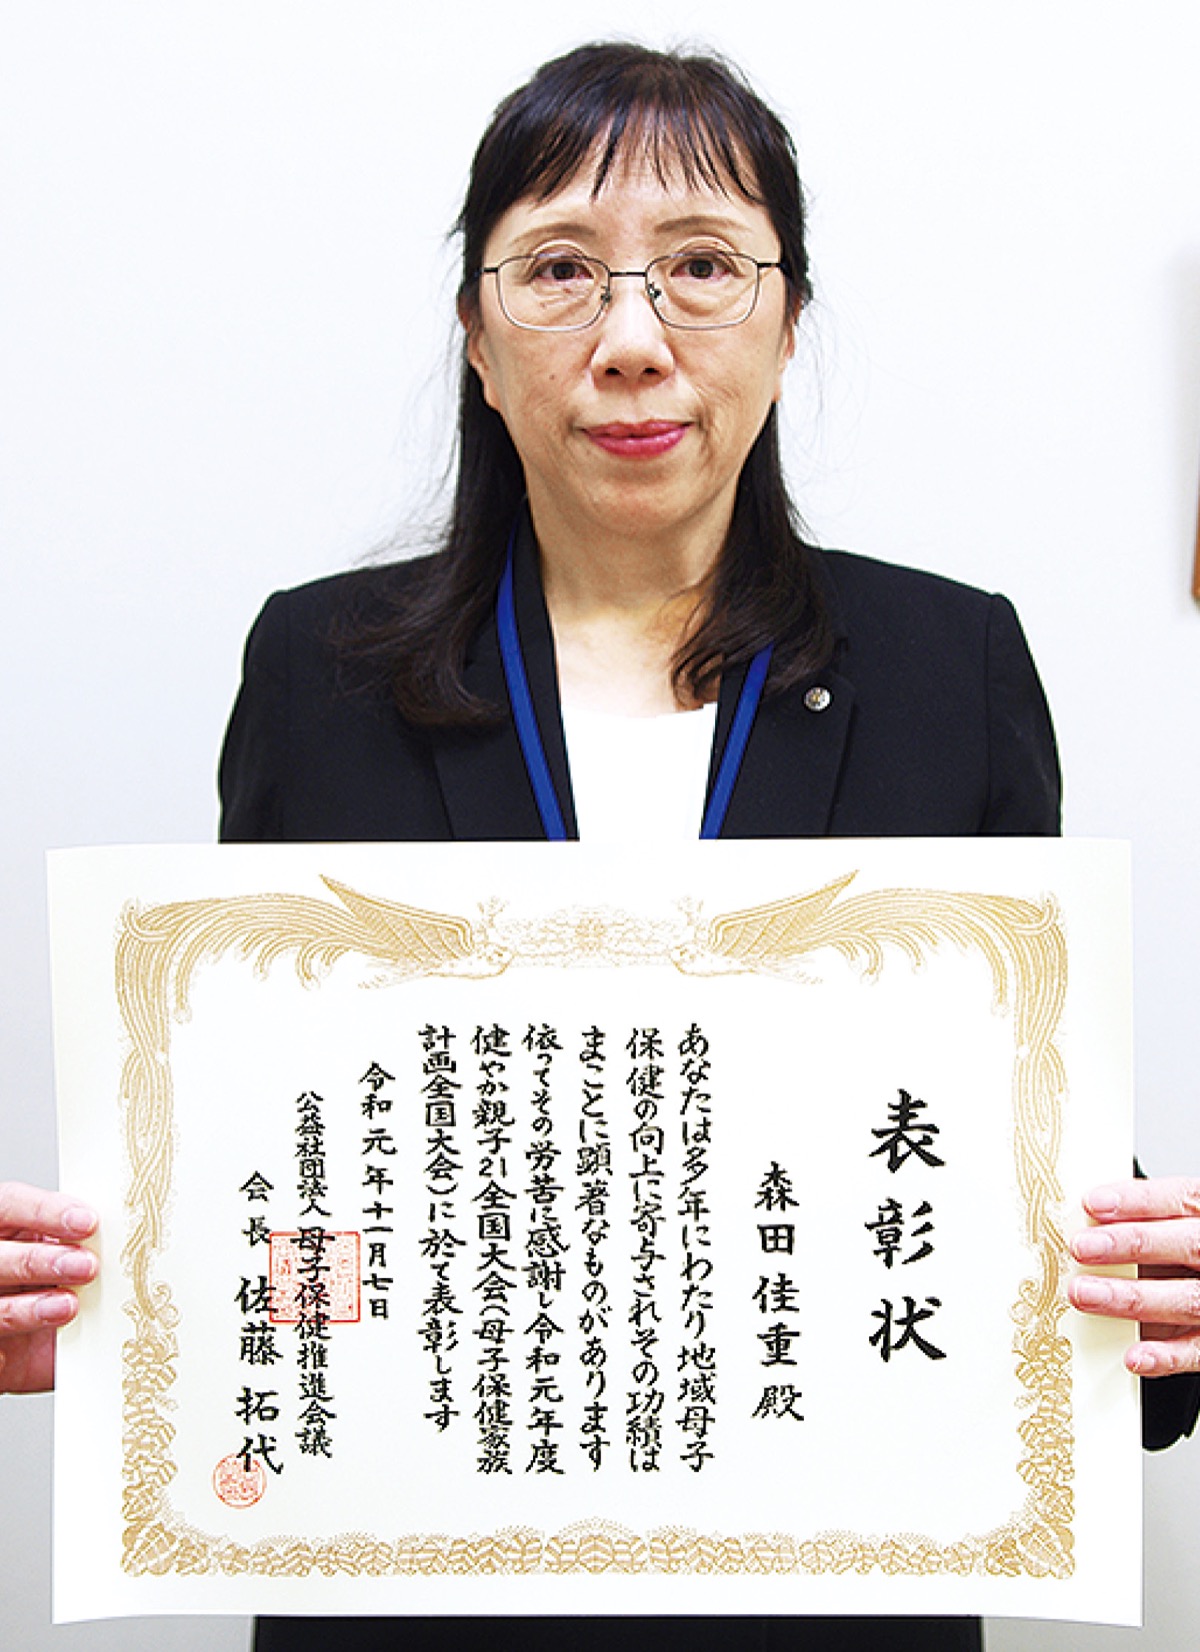 表彰状
森田佳重殿
あなたは多年にわたり地域母子
保健の向上に寄与されその功績は
まことに顕著なものがあります
依ってその労苦に感謝し令和元年度
健やか親子21全国大会(母子保健家族
計画全国大会)に於て表彰します
令和元年十一月七日
公益社団法人母子保健推進会議
会長佐藤拓代